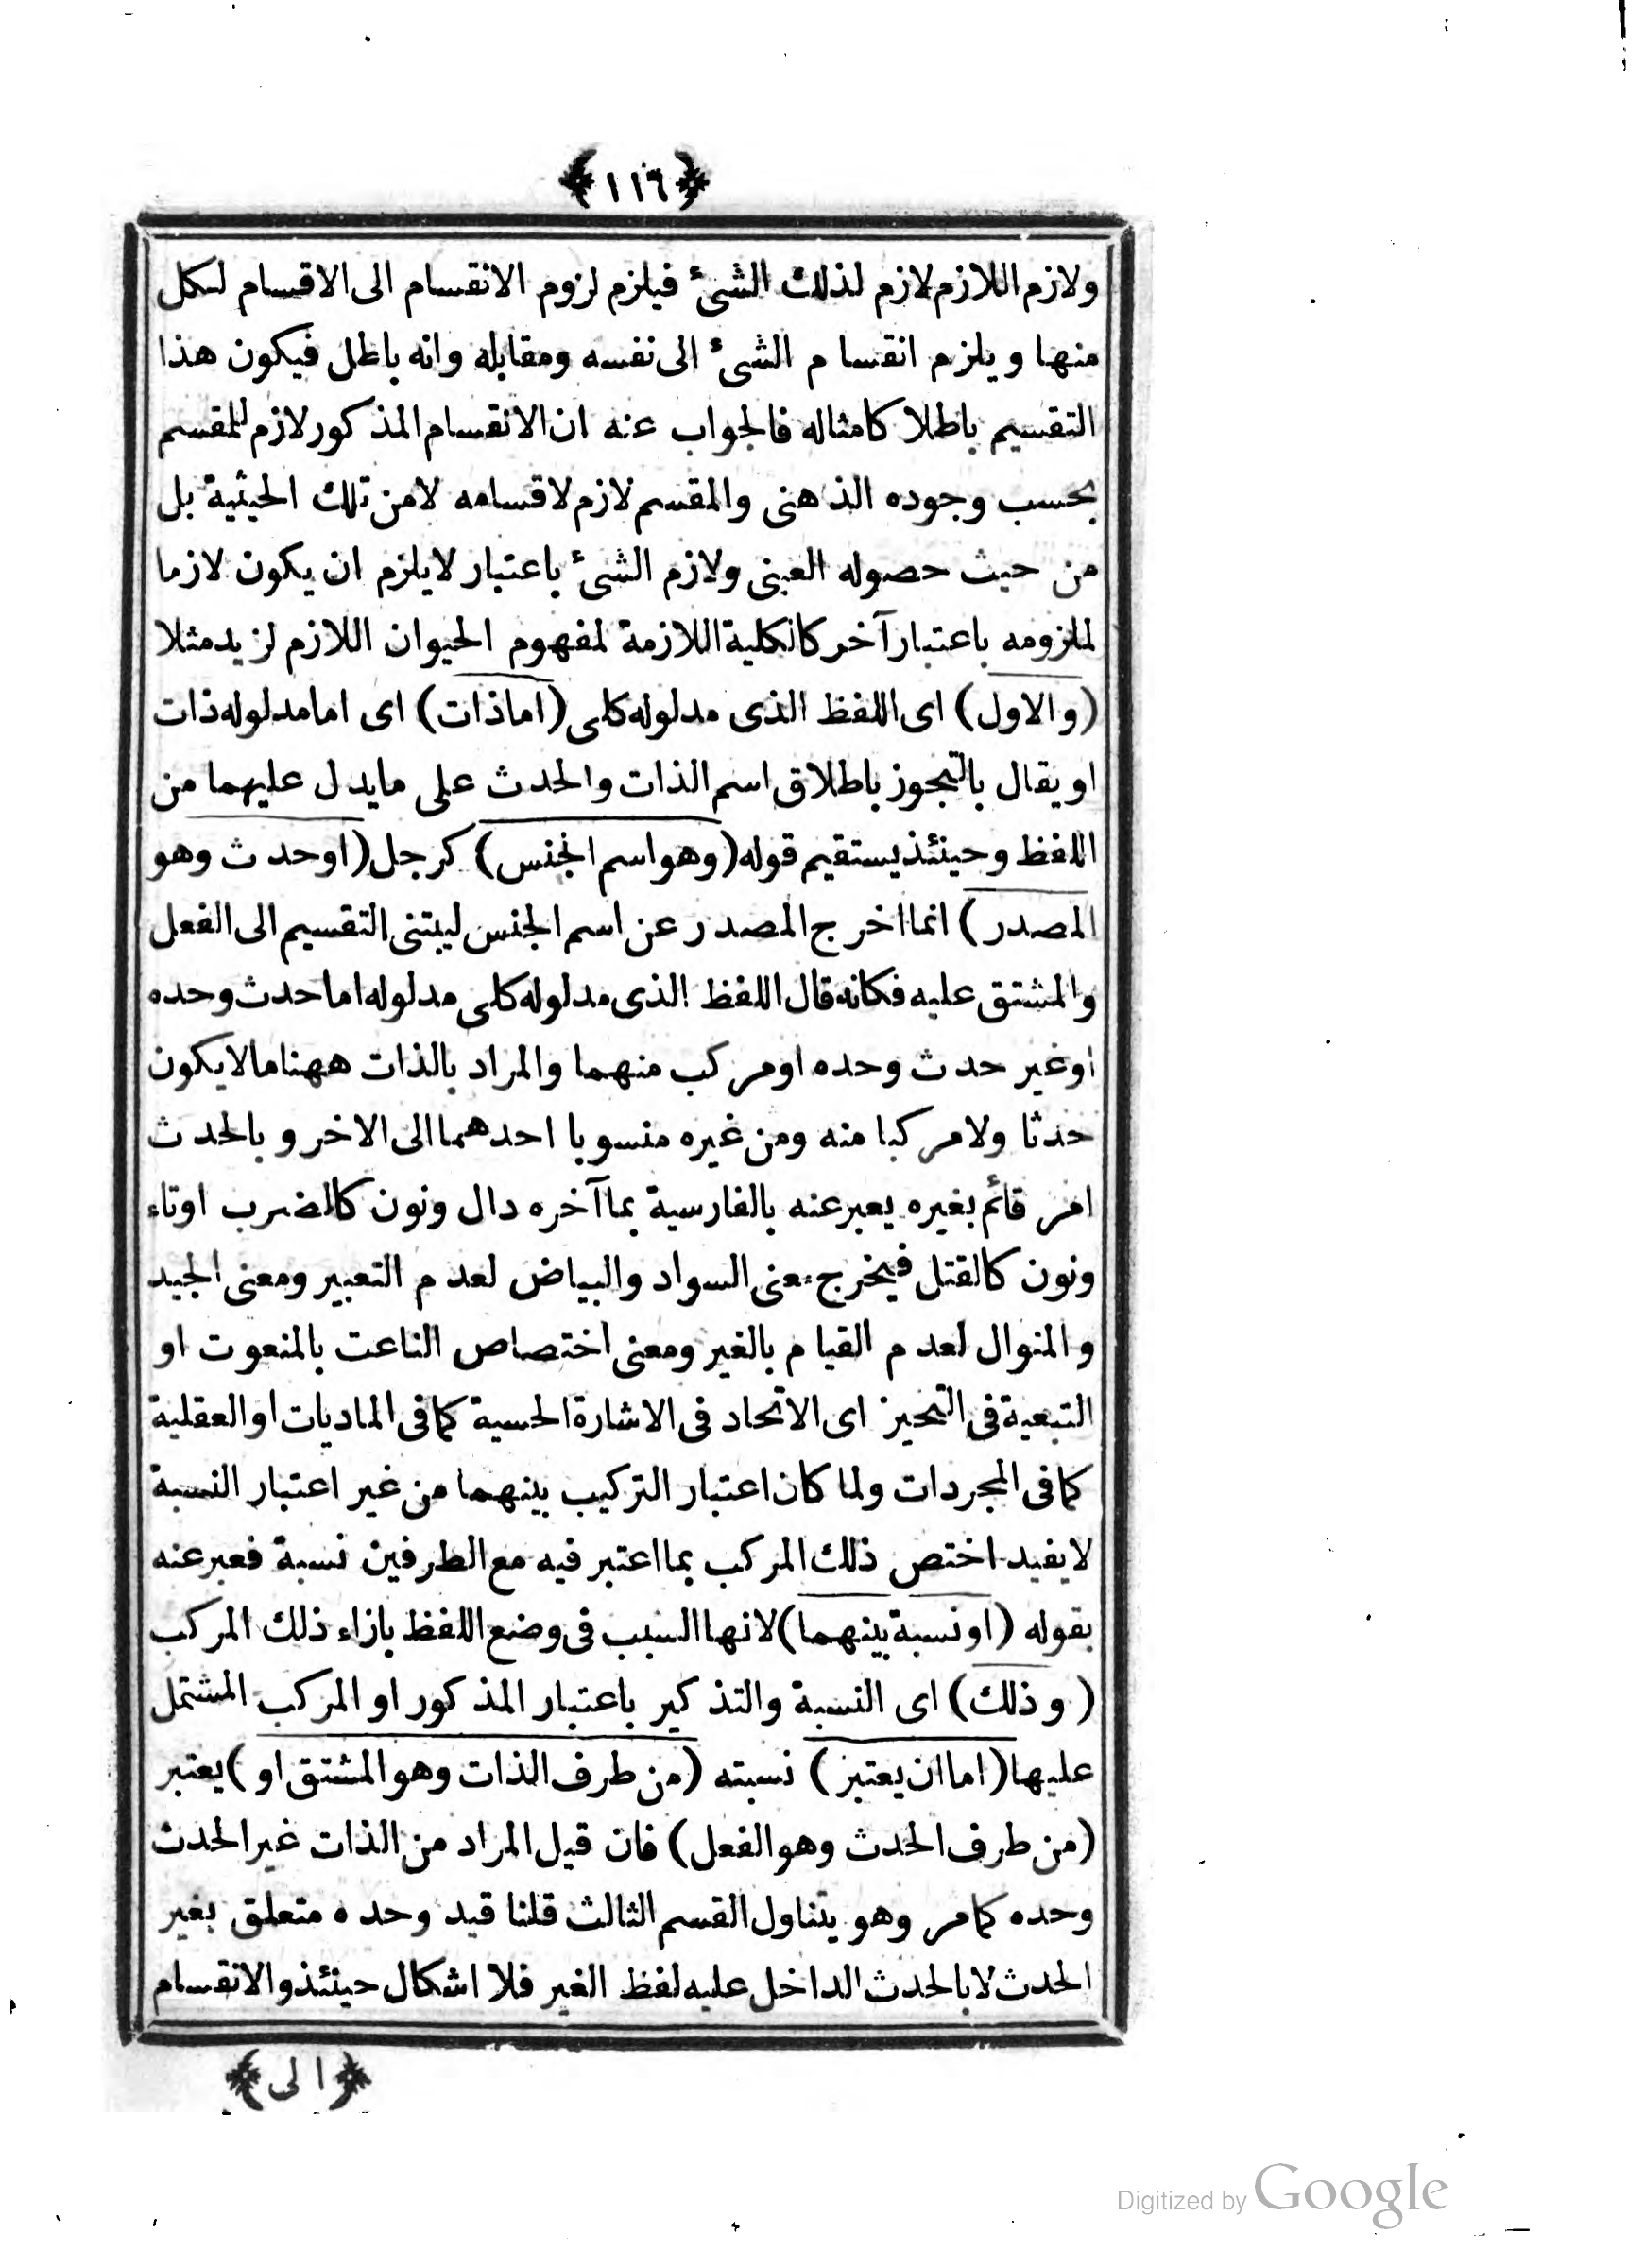 ﴿١١٦﴾
ولازم اللازم لازم لذلك الشئ فيلزم لزوم الانقسام الى الاقسام لكل
منها ويلزم انقسام الشئ الى نفسه ومقابله وانه باطل فيكون هذا
التقسيم باطلا كامثاله فالجواب عنه ان الانقسام المذكور لازم للمقسم
بحسب وجوده الذهنى والمقسم لازم لاقسامه لا من تلك الحيثية بل
من حيث حصوله العينى ولازم الشئ باعتبار لا يلزم ان يكون لازما
لملزومه باعتبار آخر كالكلية اللازمة لمفهوم الحيوان اللازم لزيد مثلا
(والاول) اى اللفظ الذى مدلوله كلى (اما ذات) اى اما مدلوله ذات
او يقال بالتجوز باطلاق اسم الذات والحدث على ما يدل عليهما من
اللفظ وحينئذ يستقيم قوله (وهو اسم الجنس) كرجل (او حدث وهو
المصدر) انما اخرج المصدر عن اسم الجنس ليبتنى التقسيم الى الفعل
والمشتق عليه فكانه قال اللفظ الذى مدلوله كلى مدلوله اما حدث وحده
او غير حدث وحده او مركب منهما والمراد بالذات ههنا ما لا يكون
حدثا ولا مركبا منه ومن غيره منسوبا احدهما الى الاخر وبالحدث
امر قائم بغيره يعبر عنه بالفارسية بما آخره دال ونون كالضرب او تاء
ونون كالقتل فيخرج معنى السواد والبياض لعدم التعبير ومعنى الجيد
والمنوال لعدم القيام بالغير ومعنى اختصاص الناعت بالمنعوت او
التبعية فى التحيز اى الاتحاد فى الاشارة الحسية كما فى الماديات او العقلية
كما فى المجردات ولما كان اعتبار التركيب بينهما من غير اعتبار النسبة
لا يفيد اختص ذلك المركب بما اعتبر فيه مع الطرفين نسبة فعبر عنه
بقوله (او نسبة بينهما) لانها السبب فى وضع اللفظ بازاء ذلك المركب
(وذلك) اى النسبة والتذكير باعتبار المذكور او المركب المشتمل
عليها (اما ان يعتبر) نسبته (من طرف الذات وهو المشتق او) يعتبر
(من طرف الحدث وهو الفعل) فان قيل المراد من الذات غير الحدث
وحده كما مر وهو يتناول القسم الثالث قلنا قيد وحده متعلق بغير
الحدث لا بالحدث الداخل عليه لفظ الغير فلا اشكال حينئذ والانقسام
﴿الى﴾
Digitized by Google